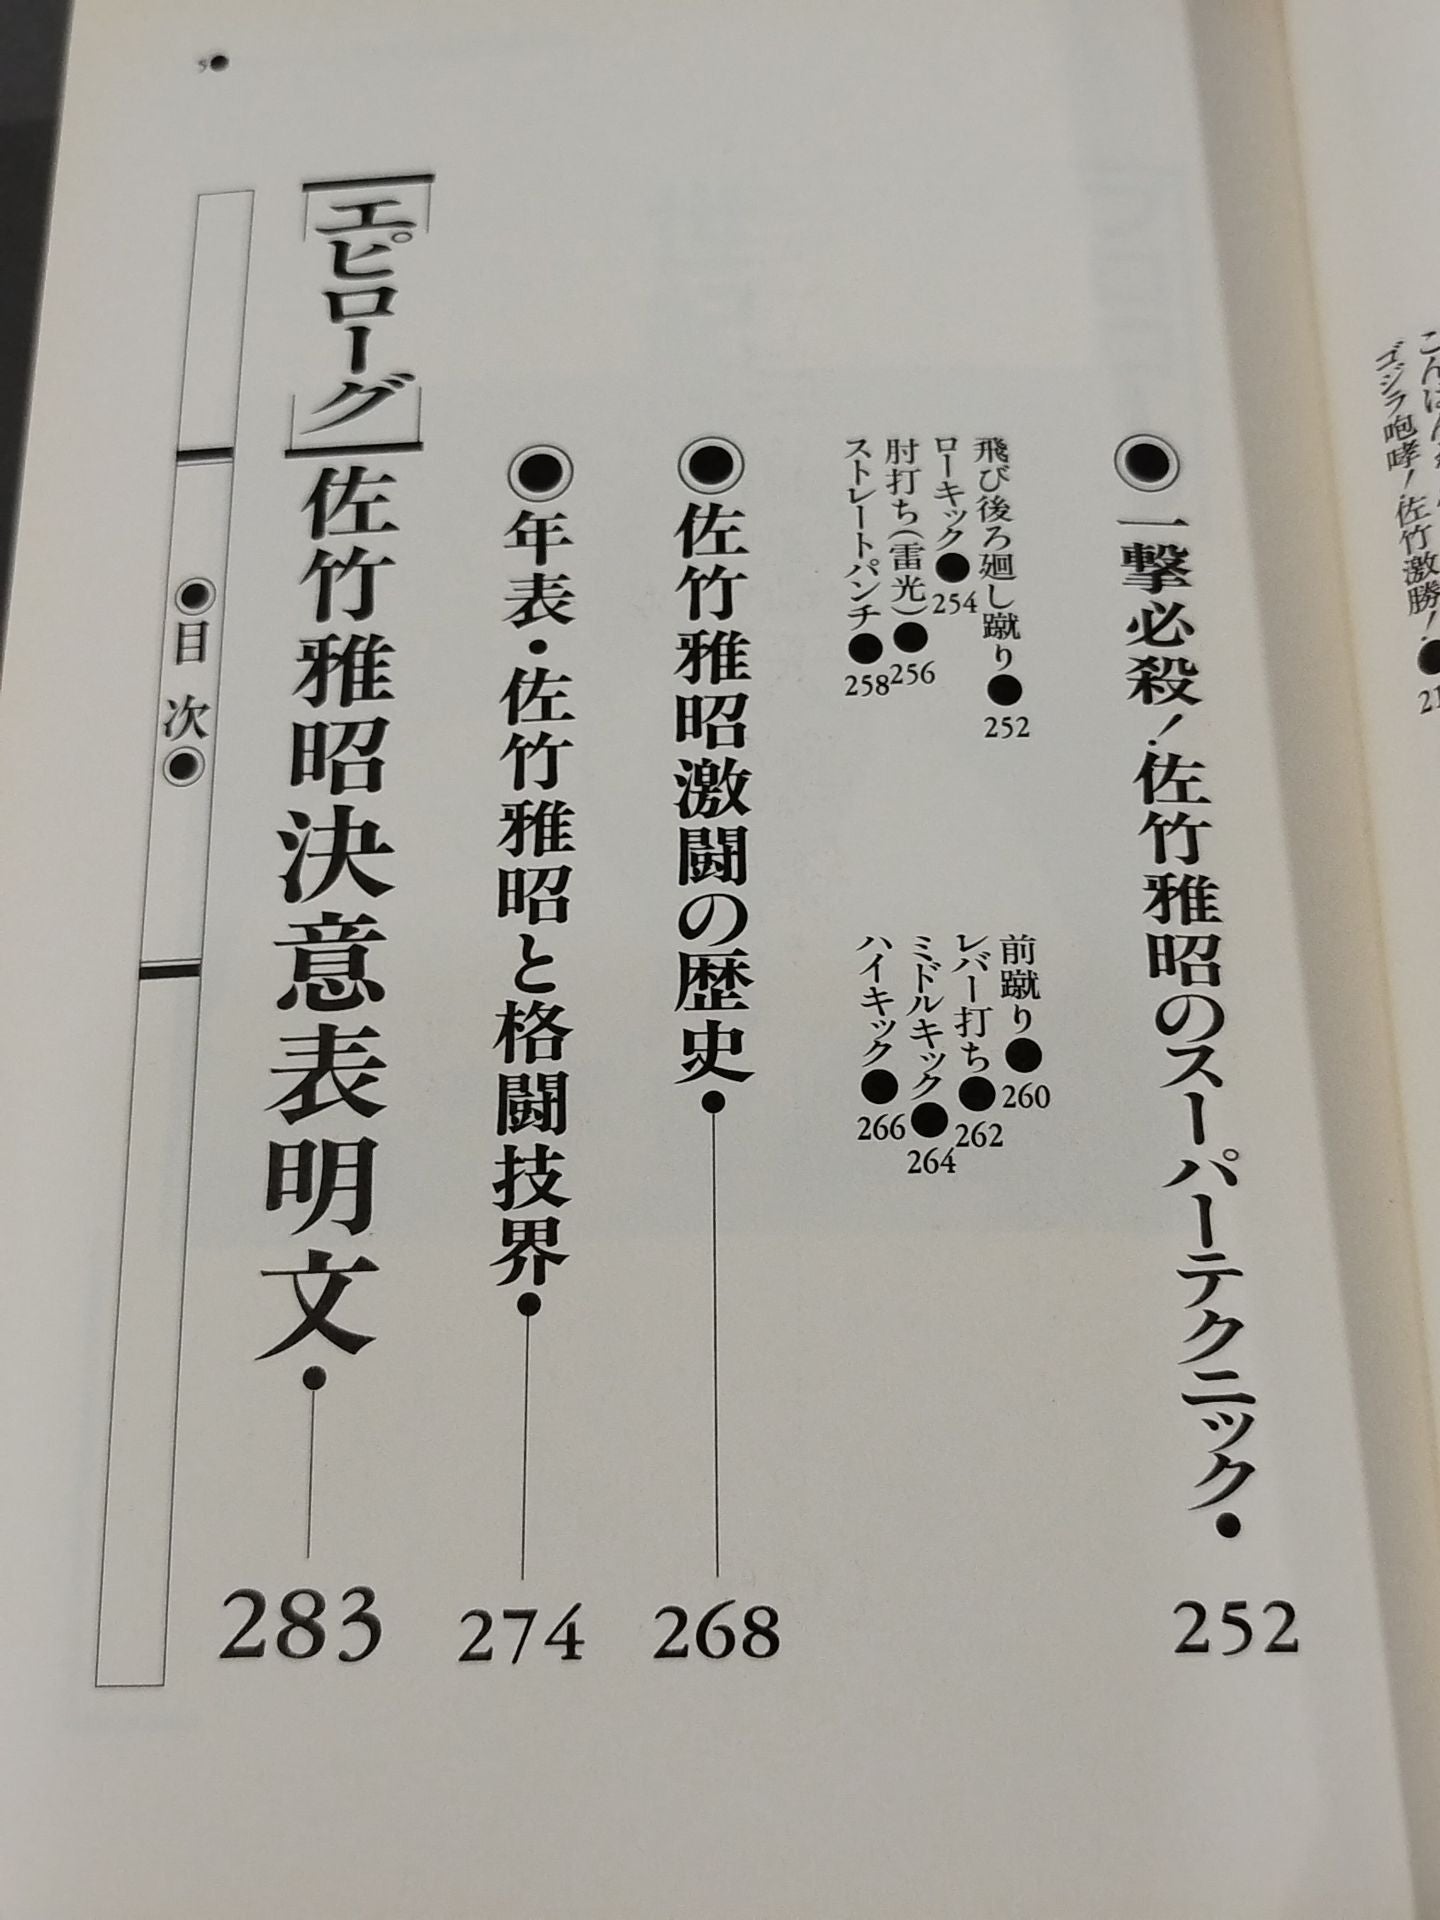 こんばん
ゴジラ咆哮！佐竹激勝！●21
◉一撃必殺！佐竹雅昭のスーパーテクニック・252
飛び後ろ廻し蹴り●252
ローキック●254
肘打ち（雷光）●256
ストレートパンチ●258
前蹴り●260
レバー打ち●262
ミドルキック●264
ハイキック●266
◉佐竹雅昭激闘の歴史・268
◉年表・佐竹雅昭と格闘技界・274
［エピローグ］佐竹雅昭決意表明文・283
◉目次◉
5●